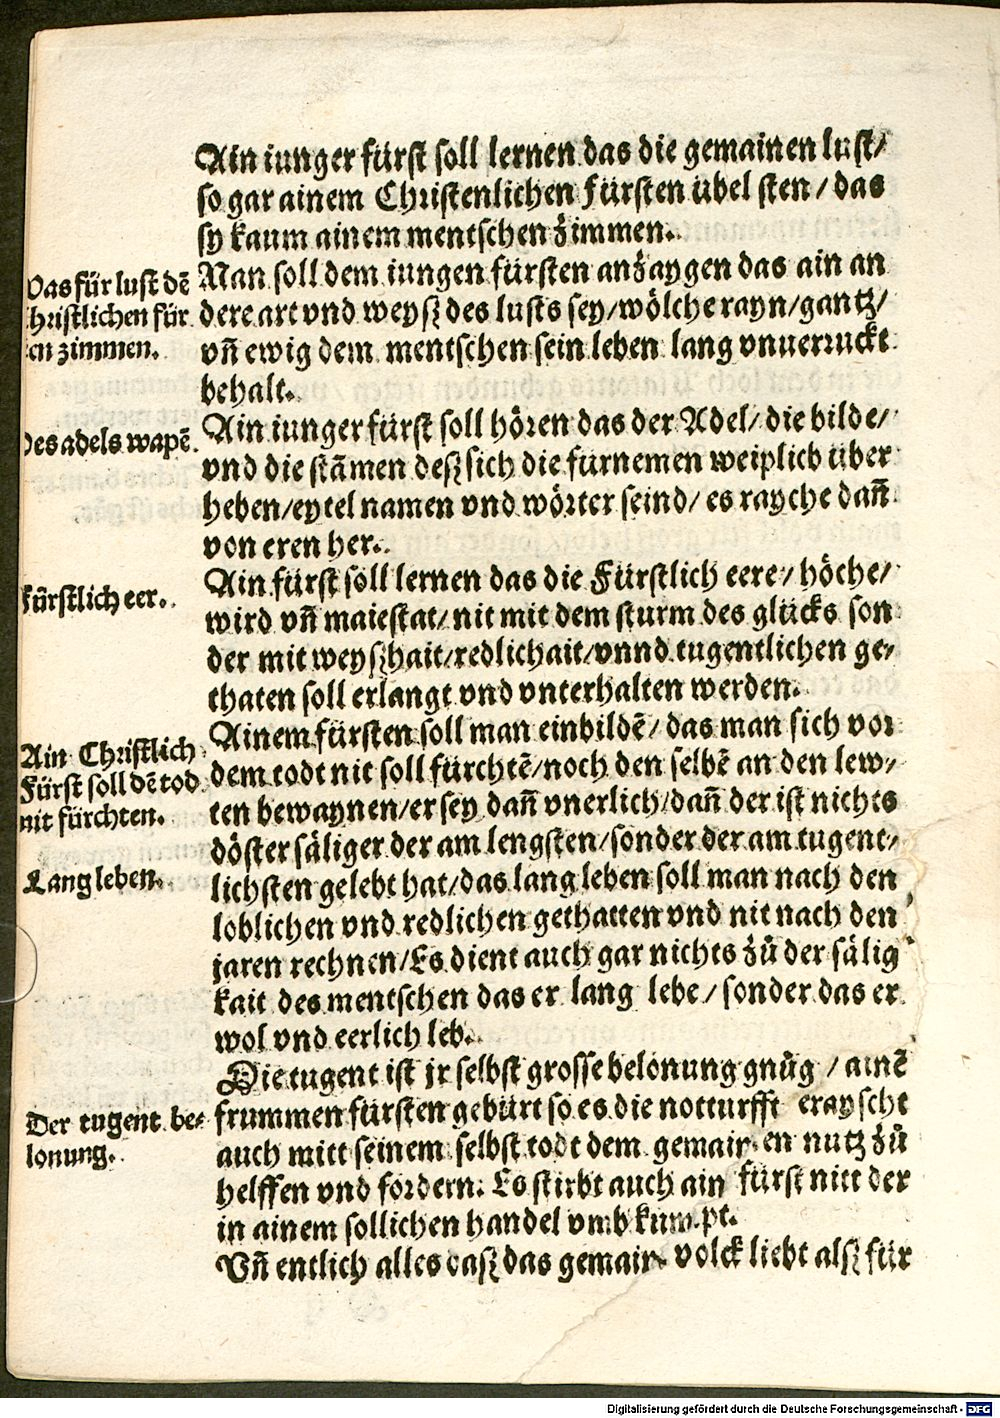 Ain iunger fürst soll lernen das die gemainen lust/
so gar ainem Christenlichen Fürsten übel sten / das
sy kaum ainem mentschen zimmen.
Man soll dem iungen fürsten anzaygen das ain an
dere art vnd weyß des lusts sey/wölche rayn/gantz/
vñ ewig dem mentschen sein leben lang vnuerruckt
behalt.
Was für lust dē
Christlichen für
sten zimmen.
Ain iunger fürst soll hören das der Adel/ die bilde/
vnd die stāmen deß sich die fürnemen weiplich über
heben/eytel namen vnd wörter seind/ es rayche dañ
von eren her.
Des adels wapē.
Ain fürst soll lernen das die Fürstlich eere/ höche/
wird vñ maiestat/ nit mit dem sturm des glücks son
der mit weyßhait/redlichait/vnnd tugentlichen ge⸗
thaten soll erlangt vnd vnterhalten werden.
Fürstlich eer.
Ainem fürsten soll man einbildē/ das man sich vor
dem todt nit soll fürchtē/noch den selbē an den lew⸗
ten bewaynen/er sey dañ vnerlich/dañ der ist nichts
döster säliger der am lengsten/sonder der am tugent⸗
lichsten gelebt hat/das lang leben soll man nach den
loblichen vnd redlichen gethatten vnd nit nach den
jaren rechnen/Es dient auch gar nichts zů der sälig
kait des mentschen das er lang lebe / sonder das er
wol vnd eerlich leb.
Ain Christlich
Fürst soll dē tod
nit fürchten.
Lang leben.
Die tugent ist jr selbst grosse belonung gnůg / ainē
frummen fürsten gebürt so es die notturfft erayscht
auch mitt seinem selbst todt dem gemainen nutz zů
helffen vnd fordern. Es stirbt auch ain fürst nitt der
in ainem sollichen handel vmb kumpt.
Vñ entlich alles daß das gemain volck liebt alß für
Der tugent be⸗
lonung.
Digitalisierung gefördert durch die Deutsche Forschungsgemeinschaft - DFG